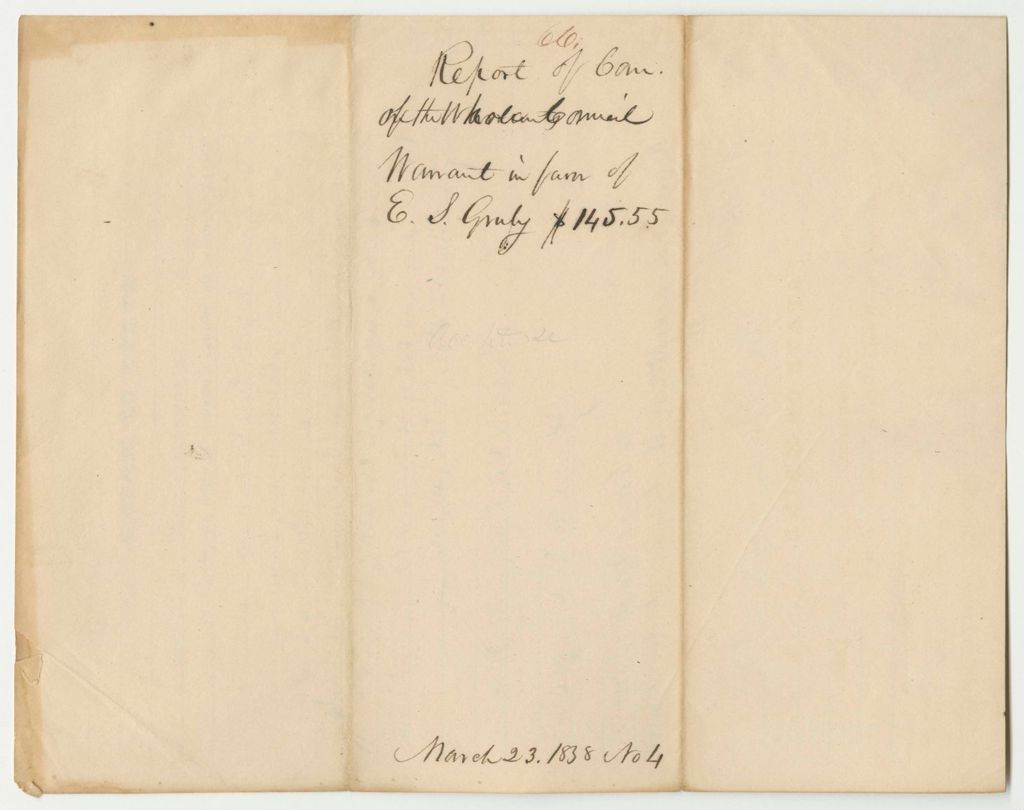 66.
Report of Com.
of the Whole on Council
Warrant in favor of
E. S. Greely $145.55
March 23. 1838 No 4